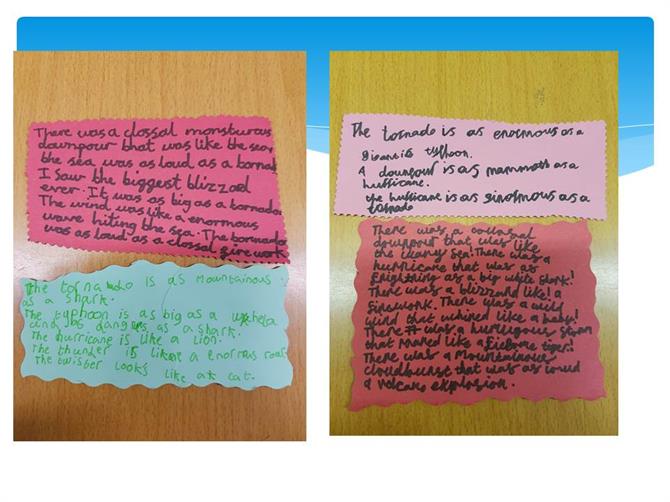 There was a clossal monsturous
downpour that was like the sea,
the sea was as loud as a tornad
I saw the biggest blizzard
ever. It was as big as a tornado
The wind was like a enormous
wave hiting the sea. The tornado
was as loud as a clossal fire work
The tornando is as mountainous
as a shark.
The typhoon is as big as a
wind as as a shark.
The hurricane is like a Lion.
The thunder is like a enormous roar
The twister looks like a cat.
The tornado is as enormous as a
typhoon.
A downpour is as mammoth as a
hurricane.
the hurricane is as ginormous as a
tornado
There was a
downpour that was like
the wavy sea! There was a
hurricane that was as
frightning as a big white shark!
There was a blizzard like! a
firework. There was a wild
wind that whined like a baby!
There was a storm
that roared like a tiger!
There was a mountainous
cloudburst that was as loud
a volcano explosion.